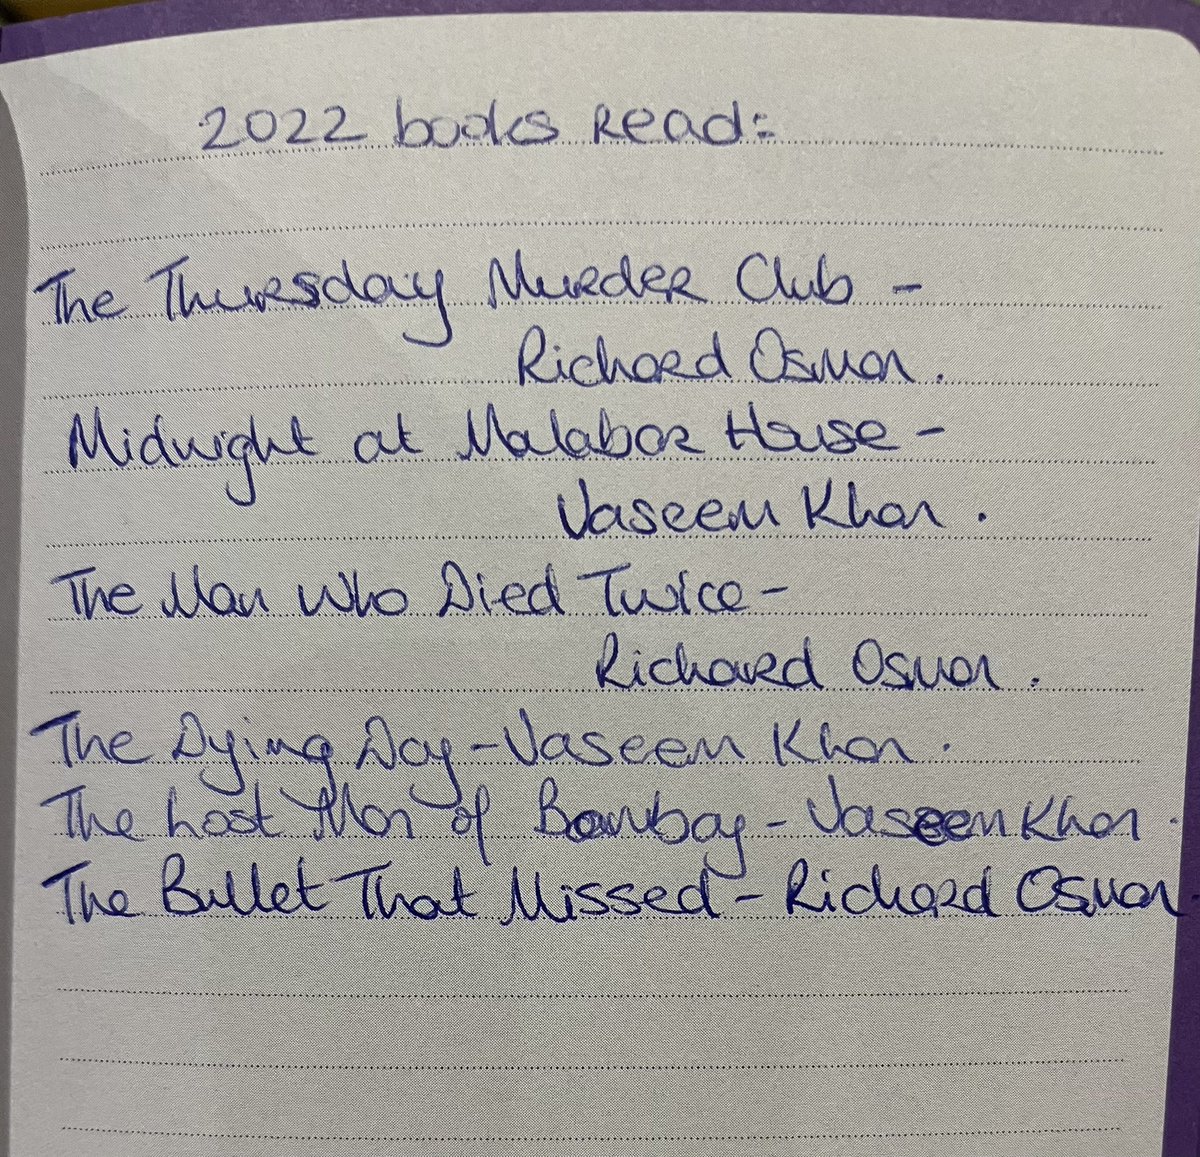 2022 books Read:
The Thursday Murder Club -
Richard Osman.
Midnight at Malabar House -
Vaseem Khan.
The Man Who Died Twice -
Richard Osman.
The Dying Day - Vaseem Khan.
The Lost Man of Bombay - Vaseem Khan.
The Bullet That Missed - Richard Osman.